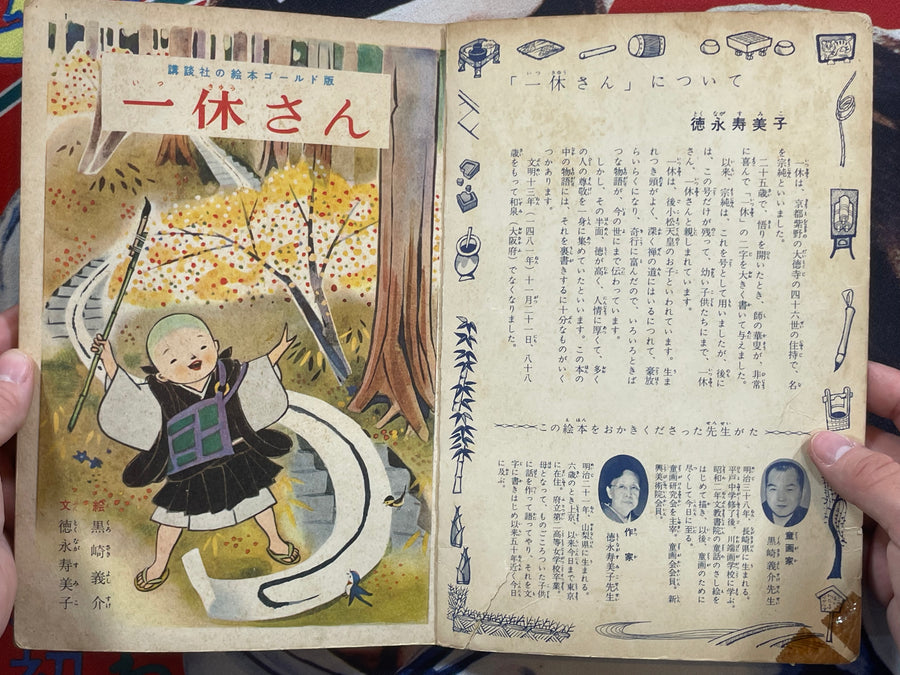 講談社の絵本ゴールド版
一休さん
絵 黒崎義介
文 徳永寿美子
「一休さん」について
徳永寿美子
一休は、京都紫野の大徳寺の四十六世の住持で、名
を宗純といいました。
二十五歳で、悟りを開いたとき、師の華叟が、非常
に喜んで「一休」の二字を大きく書いて与えました。
以来、宗純は、これを号として用いましたが、後に
は、この号だけが残って、幼い子供たちにまで、一休
さん、一休さんと親しまれています。
一休は、後小松天皇のお子といわれています。生ま
れつき頭がよく、深く禅の道にはいるにつれて、豪放
らいらくになり、奇行に富んだので、いろいろとば
つな物語が、今の世にまで伝わっています。
しかし、その半面、徳が高く、人情に厚くて、多く
の人の尊敬を一身に集めていたといいます。この本の
中の物語には、それを裏書きするに十分なものがいく
つかあります。
文明十三年(一四八一年)十一月二十一日、八十八
歳をもって和泉(大阪府)でなくなりました。
この絵本をおかきくださった先生がた
童画家
黒崎義介先生
明治三十八年、長崎県に生まれる。
平戸中学修了後、川端画学校に学ぶ。
昭和二年文教書院の童話のさし絵を
はじめて描き、以後、童画のために
尽くして今日に至る。
童画研究会を主宰。童画会会員。新
興美術院会員。
作家
徳永寿美子先生
明治二十一年、山梨県に生まれる。
六歳のとき上京、以来今日まで東京
に在住。府立第二高等女学校卒業。
母となって、ものごころついた子供
に話を作って語ってやり、それを文
字に書きはじめ以来五十年近く今日
に及ぶ。